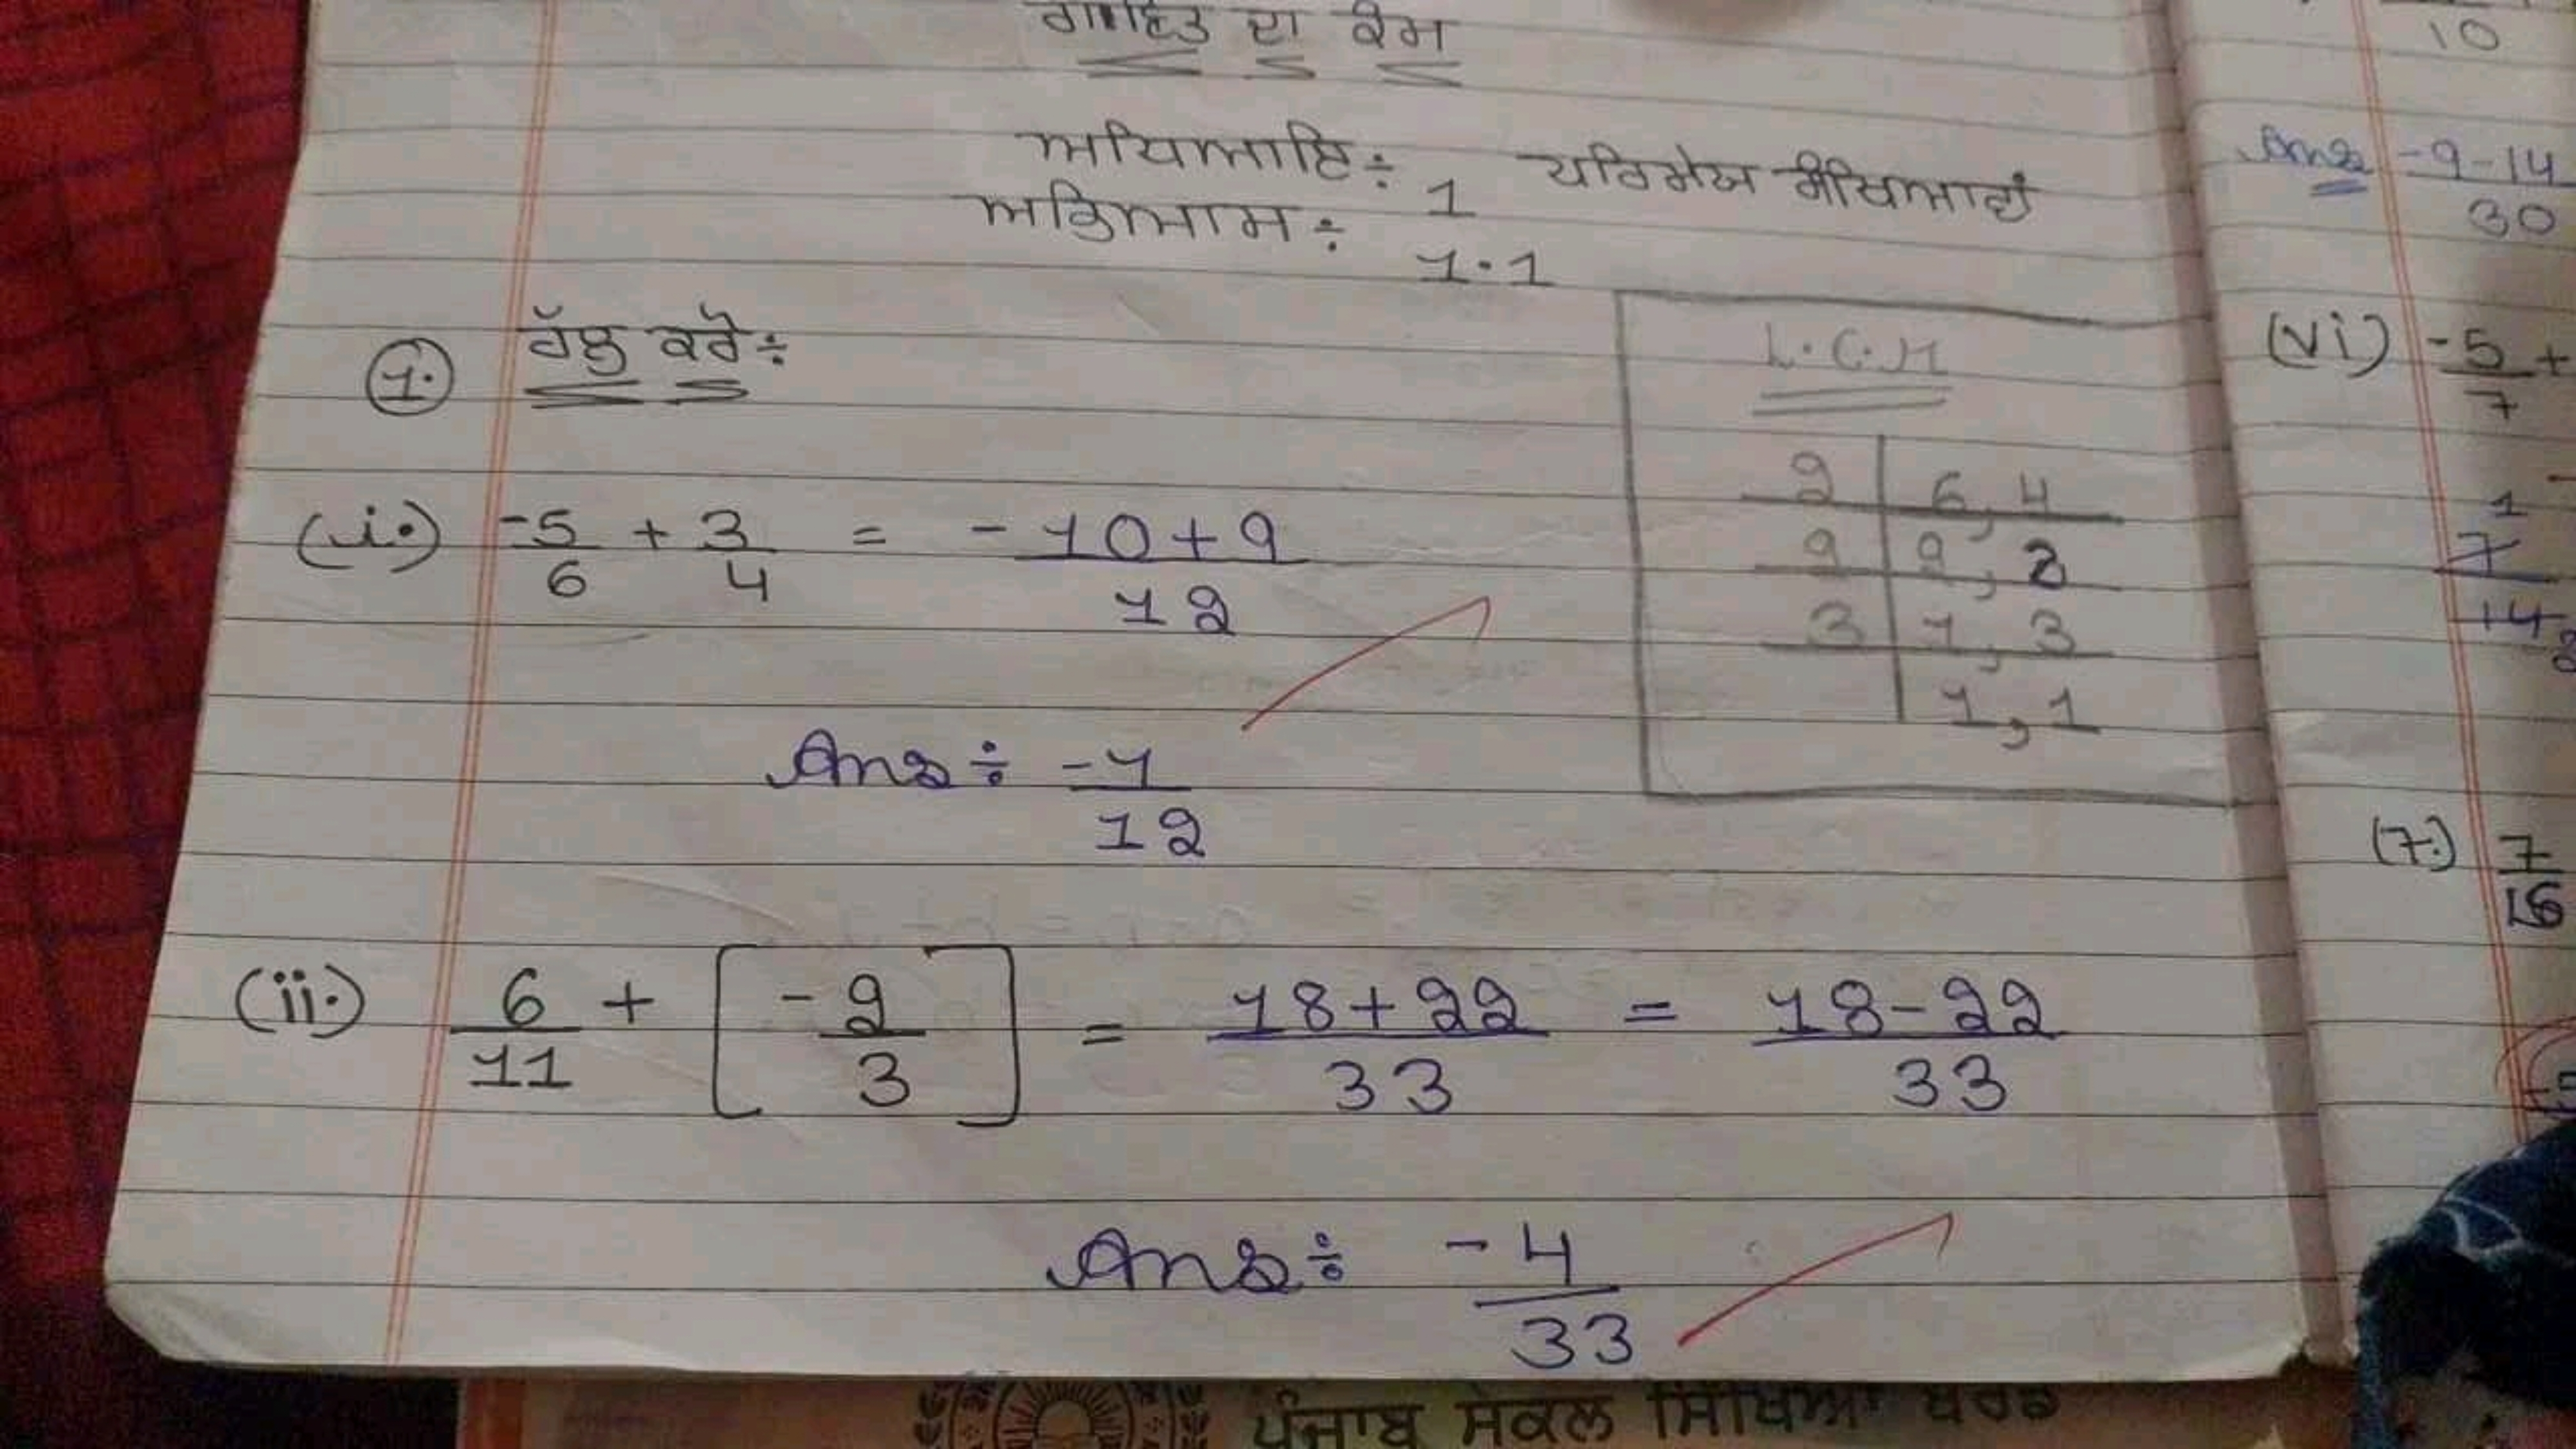 ਗਣਿਤ ਦਾ ਕੰਮ
ਅਧਿਆਇ ÷ 1 ਪਰਿਮੇਯ ਸੰਖਿਆਵਾਂ
ਅਭਿਆਸ ÷ 1.1
1. ਹੱਲ ਕਰੋ ÷
L.C.M
2 | 6, 4
2 | 2, 3
3 | 1, 3
1, 1
(i.) -5/6 + 3/4 = -10+9/12
Ans ÷ -1/12
(ii.) 6/11 + [-2/3] = 18+22/33 = 18-22/33
Ans ÷ -4/33
ਪੰਜਾਬ ਸਕੂਲ ਸਿੱਖਿਆ ਬੋਰਡ
10
Ans -9-14/30
(vi) -5/7 +
1
7
14
(7.) 7/16